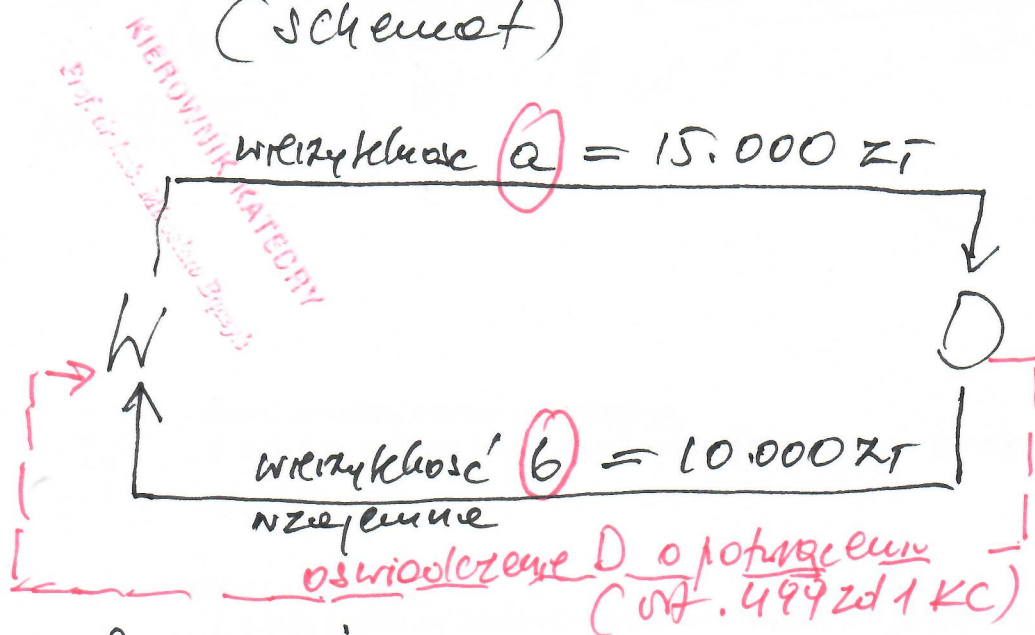 (schemat)
KIEROWNIK KATEDRY
Prof. dr hab.
wierzytelność a = 15.000 zł
W
D
wierzytelność b = 10.000 zł
wzajemna
oświadczenie D o potrąceniu
(art. 499 zd 1 KC)